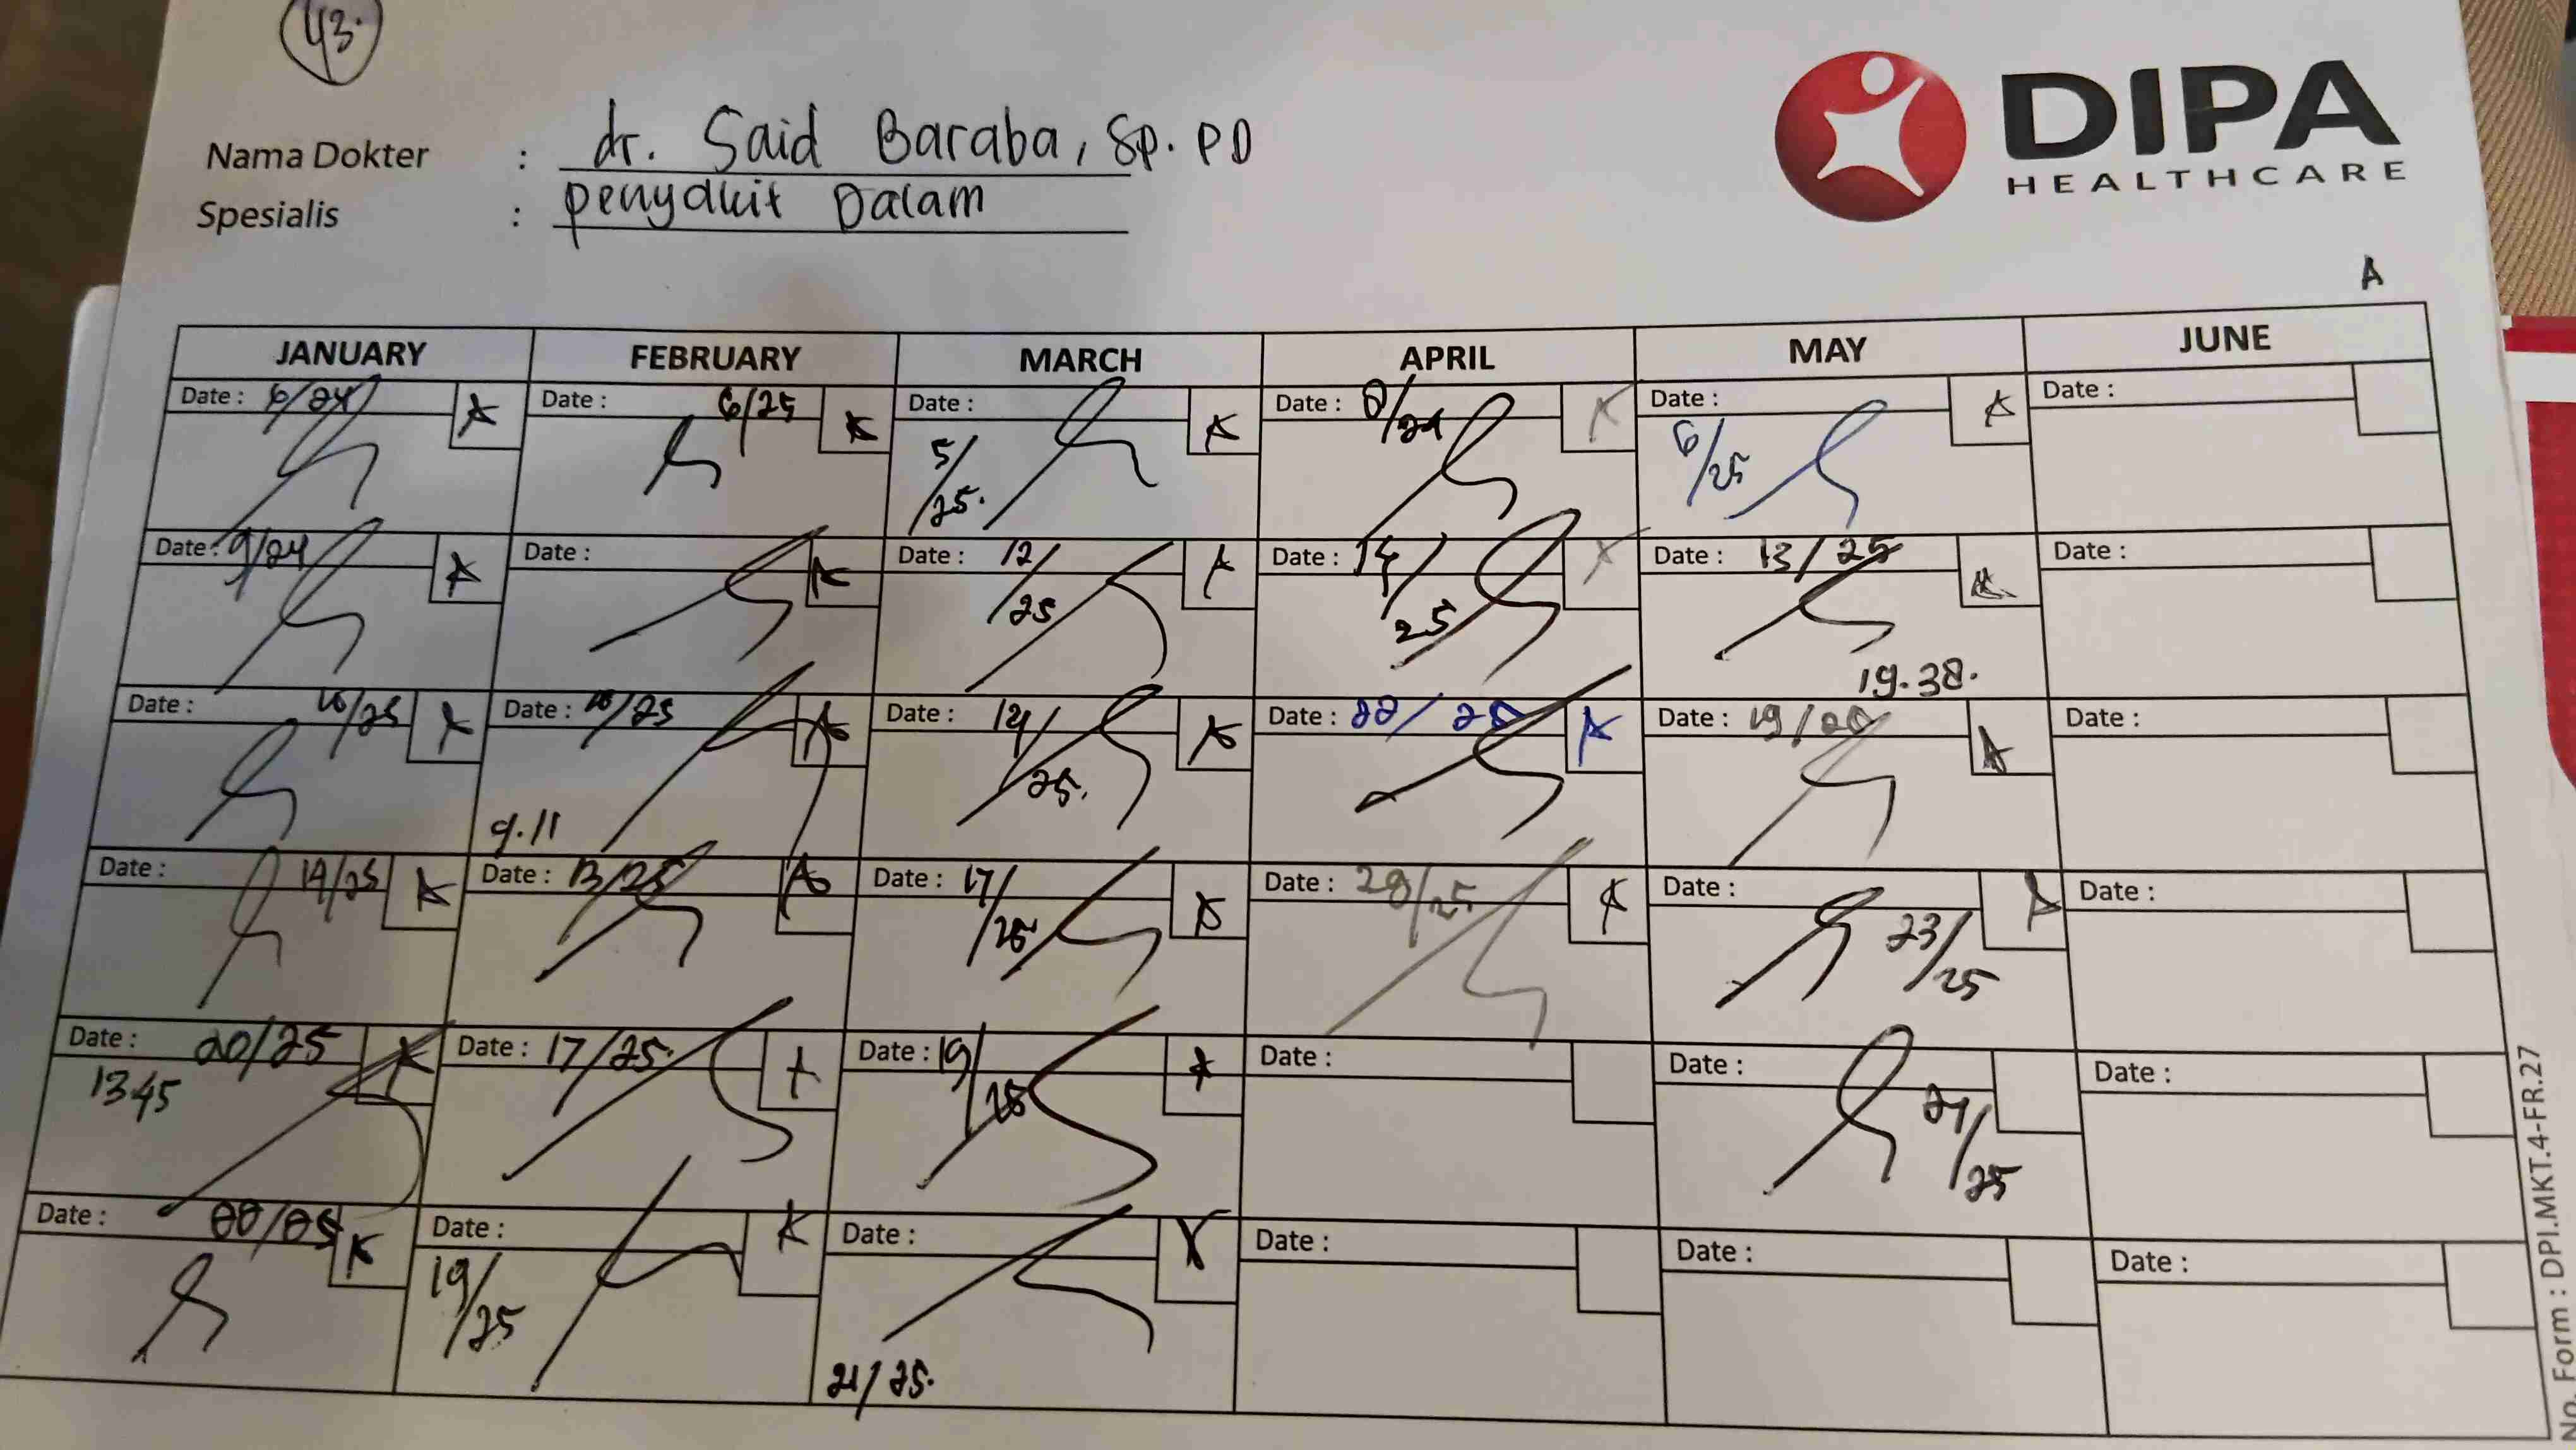 43.
DIPA
HEALTHCARE
Nama Dokter : dr. Said Baraba, Sp. PD
Spesialis : penyakit Dalam
A
JANUARY FEBRUARY MARCH APRIL MAY JUNE
Date : 6/24 A Date : 6/25 A Date : 5/25. A Date : 8/24 A Date : 6/25 A Date :
Date : 9/24 A Date : A Date : 12/25 A Date : 14/25 Date : 13/25 Date :
19.38.
Date : 16/25 A Date : 10/25 A Date : 14/25. A Date : 22/25 A Date : 19/25 A Date :
9.11
Date : 19/25 A Date : 13/25 A Date : 17/25 A Date : 28/25 A Date : 23/25 A Date :
Date : 20/25 A Date : 17/25. A Date : 19/25 A Date : Date : 27/25 Date :
1345
Date : 22/25 A Date : 19/25 A Date : 21/25. Date : Date : Date :
No. Form : DPI.MKT.4-FR.27